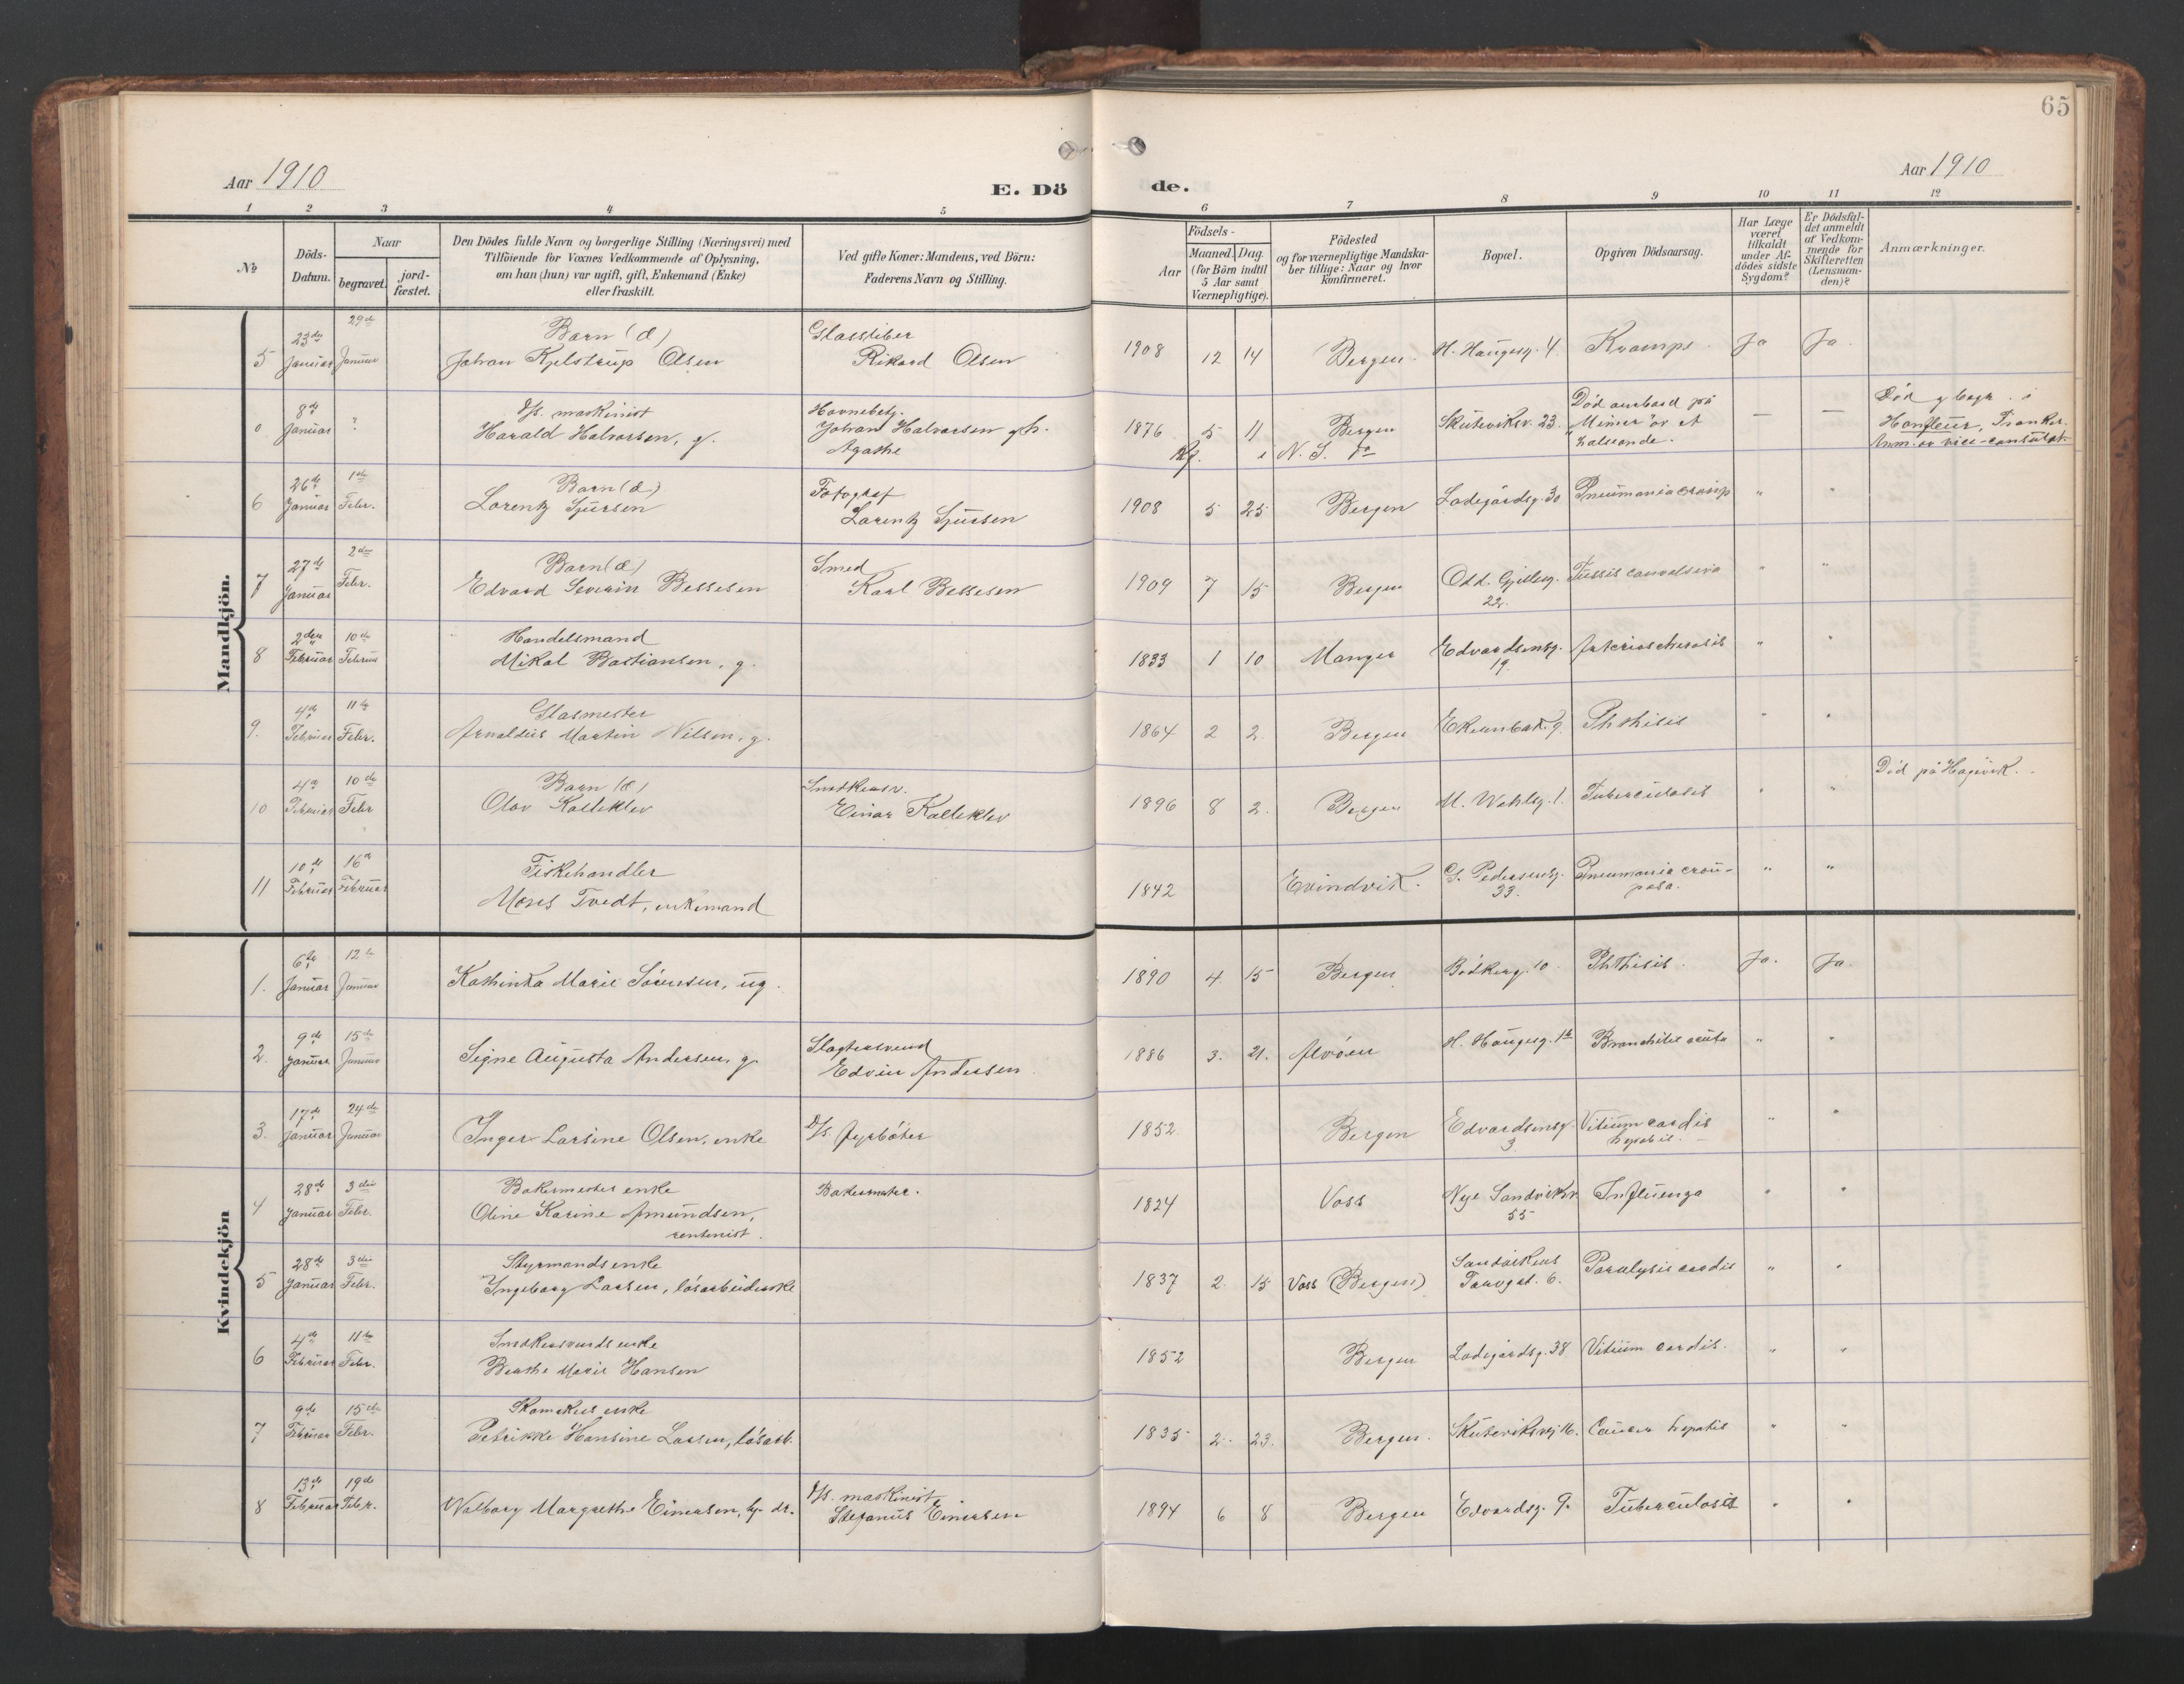 65
Aar 1910
E. Dö
de.
Aar 1910
1 2 3 4 5 6 7 8 9 10 11 12
No
Döds-
Datum.
Naar
begravet.
jord-
fæstet.
Den Dödes fulde Navn og borgerlige Stilling (Næringsvei) med
Tilföiende for Voxnes Vedkommende af Oplysning,
om han (hun) var ugift, gift, Enkemand (Enke)
eller fraskilt.
Ved gifte Koner: Mandens, ved Börn:
Faderens Navn og Stilling.
Födsels-
Aar
Maaned. Dag.
(for Börn indtil
5 Aar samt
Værnepligtige).
Födested
og for værnepligtige Mandska-
ber tillige: Naar og hvor
konfirmeret.
Bopæl.
Opgiven Dödsaarsag.
Har Læge
været
tilkaldt
under Af-
dödes sidste
Sygdom?
Er Dödsfal-
det anmeldt
af Vedkom-
mende for
Skifteretten
(Lensman-
den)?
Anmærkninger.
Mandkjön.
5 23de Januar 29de Januar Barn (æ)
Johan Kjelstrup Olsen
Glassliber
Rikard Olsen
1908 12 14 Bergen. H. Haugesg. 4. Krampe. Ja Ja.
0 8de Januar ? D/s. maskinist
Harald Halvorsen, g.
Havnebetj.
Johan Halvorsen gh.
Agathe
1876 5 11 Bergen
i N. S. da
Skuteviksv. 23. Död ombord på
"Mimer" av et
halsonde.
— —
Död g begr. i
Honfleur, Frankr.
Anm. av vice-consulat
6 26de Januar 1ste Febr. Barn (æ)
Lorentz Sjursen
Fotograf
Lorentz Sjursen
1908 5 25 Bergen Ladegårdsg. 30 Pneumonia croup " "
7 27de Januar 2den Febr. Barn (æ)
Edvard Severin Bessesen
Smed
Karl Bessesen
1909 7 15 Bergen Odd. Gjellesg.
22. Tussis convulsiva " "
8 2den Februar 10de Februar Handelsmand
Mikal Bastiansen, g.
1833 1 10 Manger Edvardsensg.
19. Arteriosclerosis " "
9. 4de Februar 11te Febr. Glasmester
Arnoldus Martin Nilsen, g.
1864 2 2 Bergen Ekrenbak. 9. Phthisis " "
10 4de Februar 10de Febr Barn (æ)
Olav Kalleklev
Snedkersv.
Einar Kalleklev
1896 8 2. Bergen M. Wehlsg. 1. Tuberculosis " "
Död på Hagevik.
11 10de Februar 16de Februar Fiskehandler
Moses Tvedt, enkemand
1842 Evindvik. G. Pedersensg.
33. Pneumonia crou-
posa. " "
Kvindekjön
1. 6te Januar 12te Januar Kathinka Marie Sörensen, ug.
1890 4 15 Bergen Bödkerg. 10. Phthisis. Ja. Ja.
2. 9de Januar 15de Januar Signe Augusta Andersen, g.
Slagtersvend
Edvin Andersen.
1886 3. 21. Alvöen H. Haugesg. 1b Bronchitis acuta " "
3. 17de Januar 24de Januar Inger Larsine Olsen, enke D/s. fyrböter
1852. Bergen Edvardsensg.
3 Vitium cordis
hepatis. " "
4 28de Januar 3die Febr. Bakermester enke
Oline Karine Amundsen,
rentenist.
Bakermester.
1824 Voss Nye Sandviksv
55 Influenza " "
5 28de Januar 3die Febr. Styrmands enke
Ingeborg Larsen, lösarbeiderske
1837 2. 15 Voss (Bergen) Sandvikens
Torvgat. 6. Paralysis cordis " "
6 4de Februar 11te Febr. Snedkersvends enke
Berthe Marie Hansen
1852 Bergen Ladegårdsg. 38. Vitium cordis. " "
7 9de Februar 15de Febr. Skomakers enke
Petrikke Hansine Larsen, lösarb.
1835 2. 23. Bergen. Skuteviksvej 16. Cancer hepatis " "
8 13de Februar 19de Febr. Walborg Margrethe Einersen, tj. dr.
D/s. maskinist
Stefanus Einersen
1894 6 8 Bergen Edvardsg. 9a Tuberculosis " "